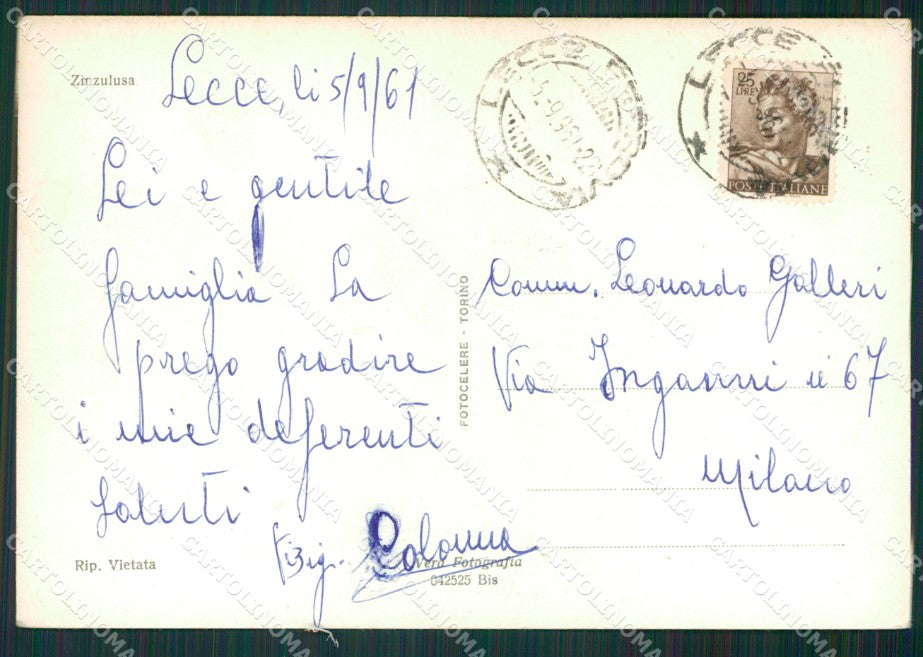 Zinzulusa
Lecce, li 5/9/61
Lei e gentile
famiglia La
prego gradire
i mie deferenti
saluti
Colonna
Rip. Vietata
Vera Fotografia
042525 Bis
FOTOCELERE - TORINO
LECCE
LECCE
25
LIRE
POSTE ITALIANE
Comm. Leonardo Galleri
Via Inganni n 67
Milano
CARTOLINOMANIA